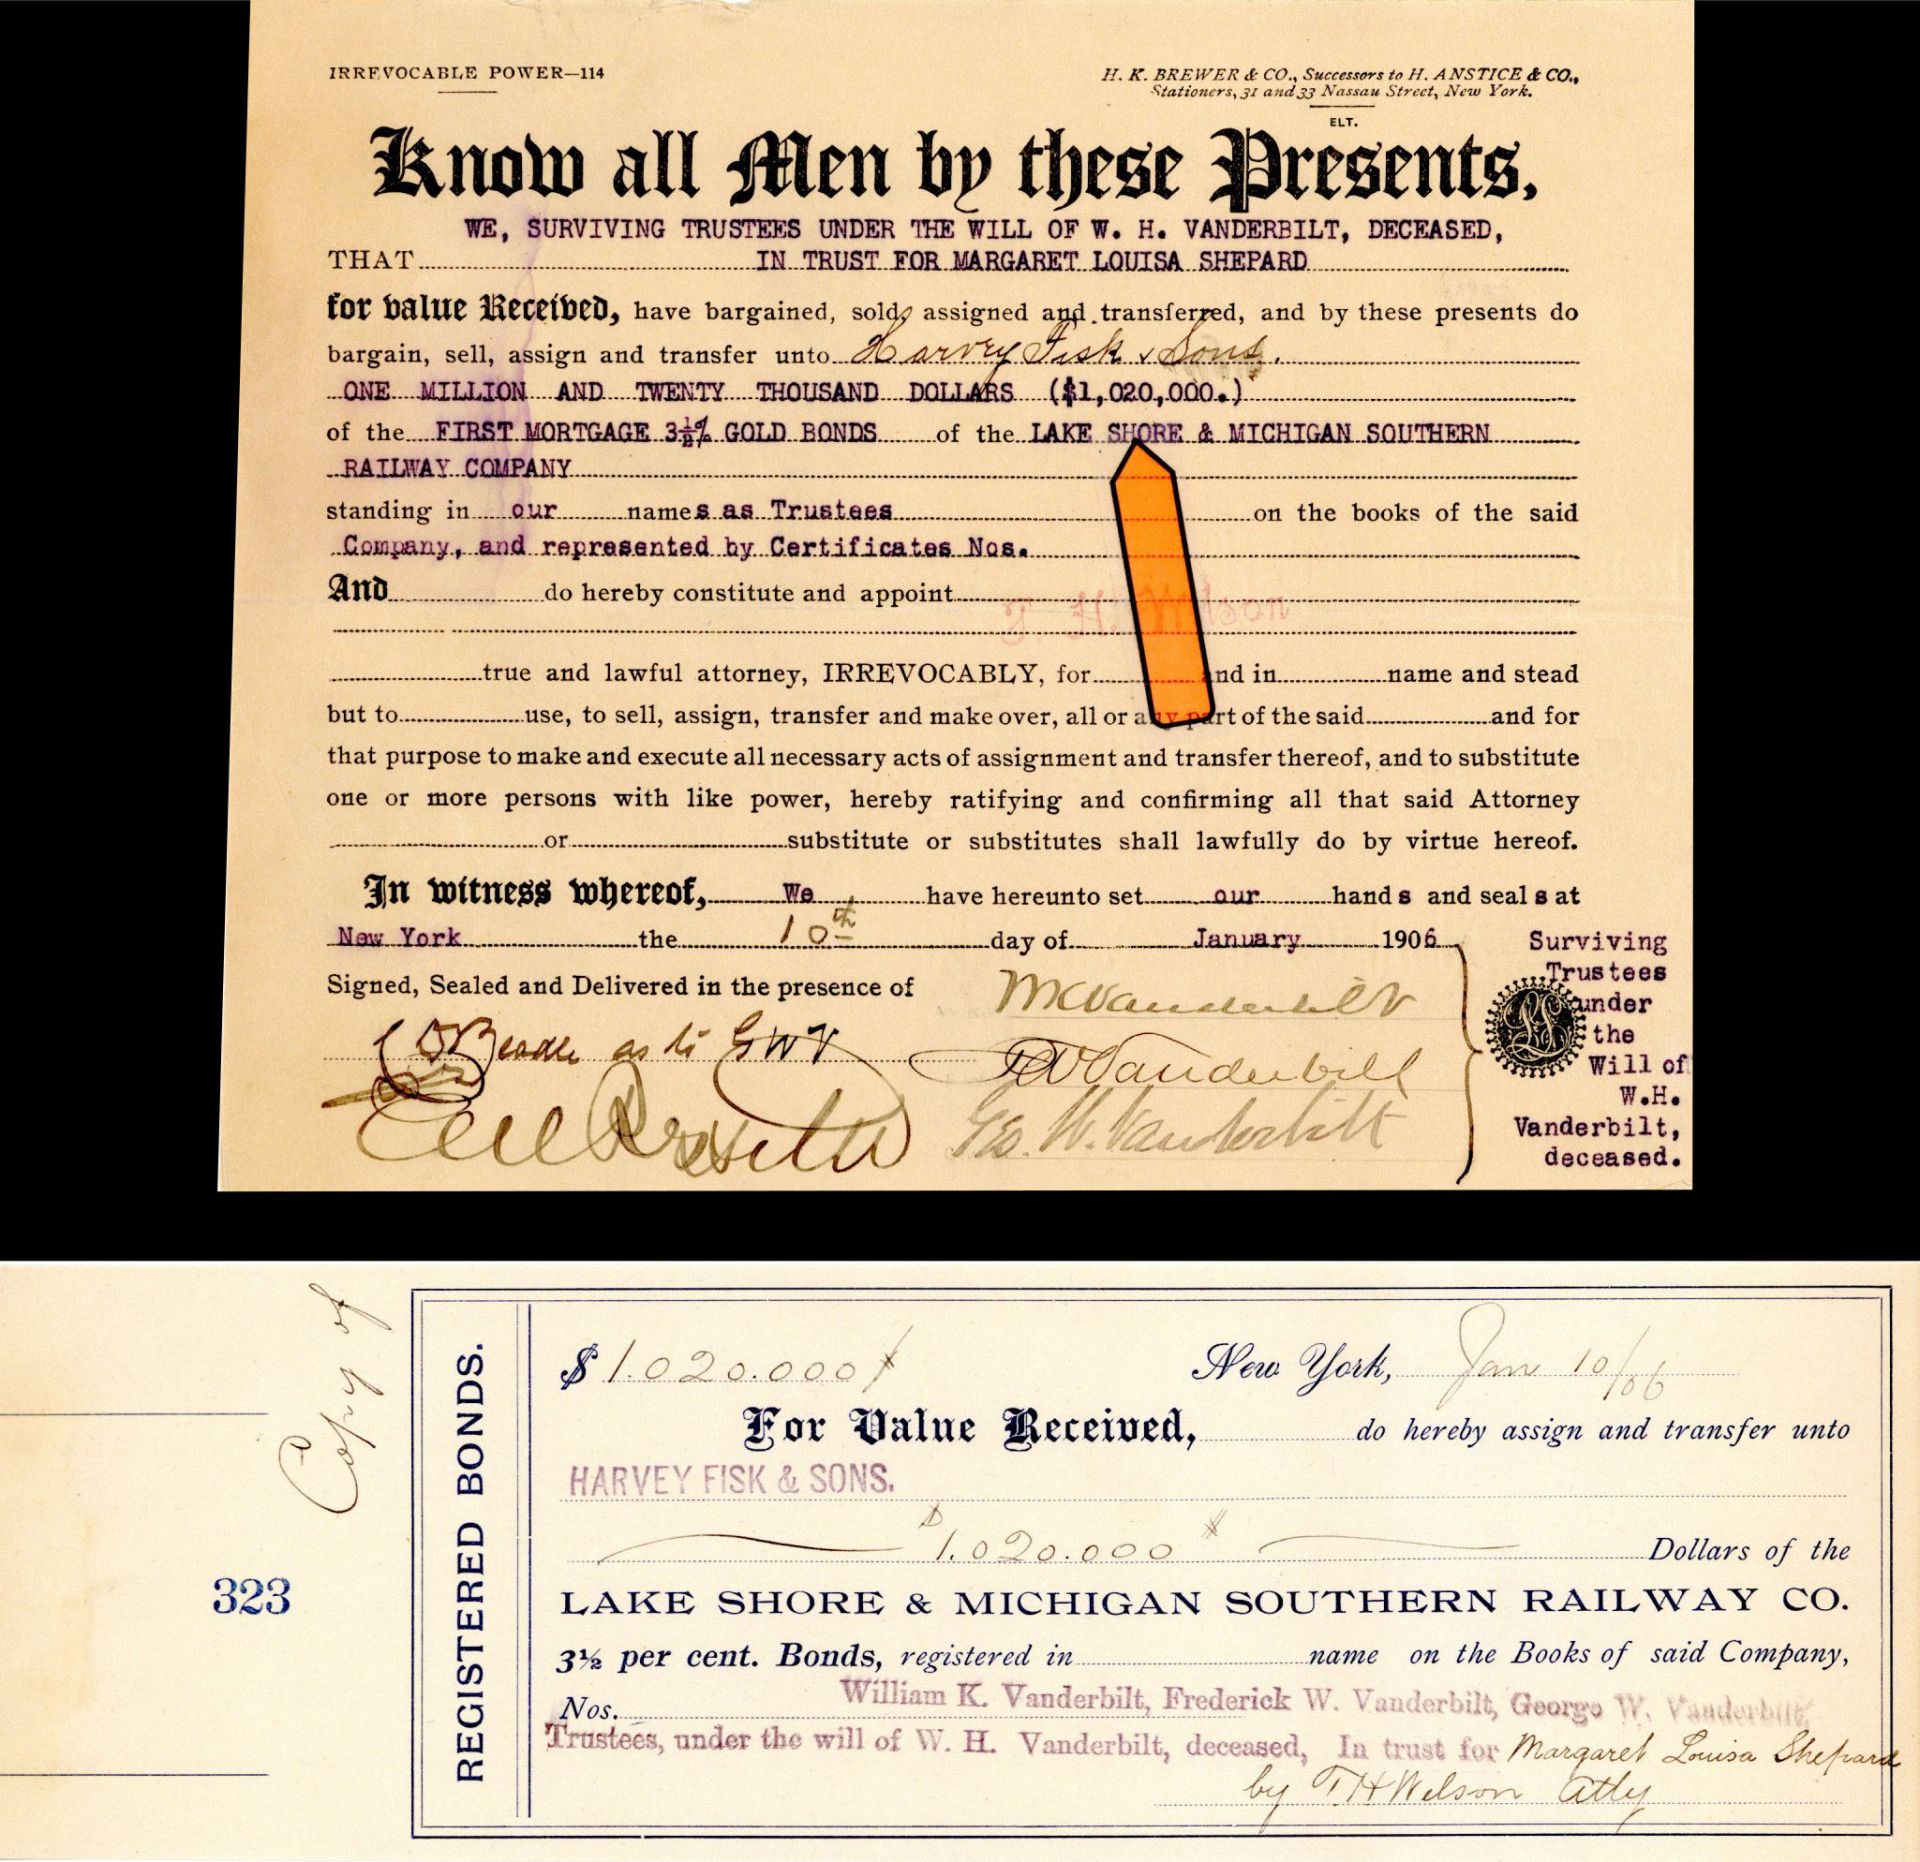 IRREVOCABLE POWER—114
H. K. BREWER & CO., Successors to H. ANSTICE & CO.,
Stationers, 31 and 33 Nassau Street, New York.
ELT.
Know all Men by these Presents,
WE, SURVIVING TRUSTEES UNDER THE WILL OF W. H. VANDERBILT, DECEASED,
THAT IN TRUST FOR MARGARET LOUISA SHEPARD
for value Received, have bargained, sold, assigned and transferred, and by these presents do
bargain, sell, assign and transfer unto Harvey Fisk & Sons.
ONE MILLION AND TWENTY THOUSAND DOLLARS ($1,020,000.)
of the FIRST MORTGAGE 3½% GOLD BONDS of the LAKE SHORE & MICHIGAN SOUTHERN
RAILWAY COMPANY
standing in our names as Trustees on the books of the said
Company, and represented by Certificates Nos.
And do hereby constitute and appoint
T. H. Wilson
true and lawful attorney, IRREVOCABLY, for and in name and stead
but to use, to sell, assign, transfer and make over, all or any part of the said and for
that purpose to make and execute all necessary acts of assignment and transfer thereof, and to substitute
one or more persons with like power, hereby ratifying and confirming all that said Attorney
or substitute or substitutes shall lawfully do by virtue hereof.
In witness whereof, We have hereunto set our hands and seals at
New York the 10th day of January 1906
Signed, Sealed and Delivered in the presence of
as to GWV
WKVanderbilt
FWVanderbilt
Geo. W. Vanderbilt
Surviving
Trustees
under
the
Will of
W.H.
Vanderbilt,
deceased.
LS
Copy of
323
REGISTERED BONDS.
$1.020.000
New York, Jan 10/06
For Value Received, do hereby assign and transfer unto
HARVEY FISK & SONS.
$1.020.000 Dollars of the
LAKE SHORE & MICHIGAN SOUTHERN RAILWAY CO.
3½ per cent. Bonds, registered in name on the Books of said Company,
Nos. William K. Vanderbilt, Frederick W. Vanderbilt, George W. Vanderbilt,
Trustees, under the will of W. H. Vanderbilt, deceased, In trust for Margaret Louisa Shepard
by T. H Wilson Atty